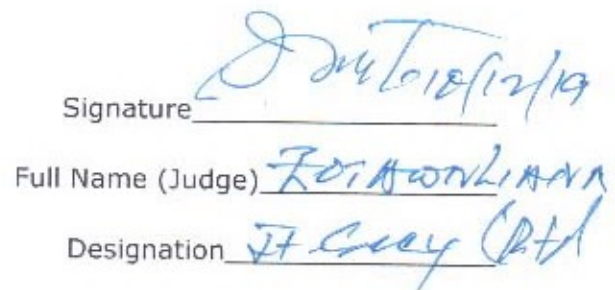 Signature 10/12/19
Full Name (Judge) ZOTAWNLIANA
Designation Jt Secy (Rtd